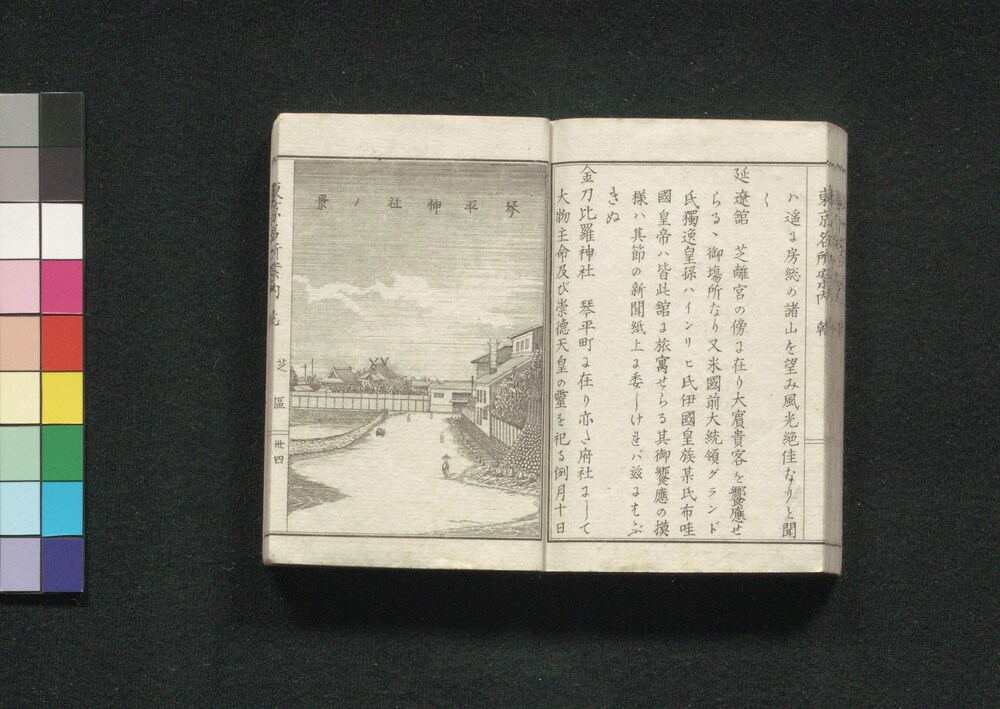 東京名所案内 乾
ハ遥ま房総の諸山を望み風光絶佳なりと聞
く
延遼館 芝離宮の傍ま在り大賓貴客を饗應せ
らるヽ御塲所なり又米國前大統領グランド
氏獨逸皇孫ハインリヒ氏伊國皇族某氏布哇
國皇帝ハ皆此館ま旅寓せらる其御饗應の摸
様ハ其節の新聞紙上ま委しけれバ茲まむぶ
きぬ
金刀比羅神社 琴平町ま在り亦た府社まして
大物主命及び崇徳天皇の靈を祀る例月十日
琴平神社ノ景
東京名所案内 乾
芝區
卅四